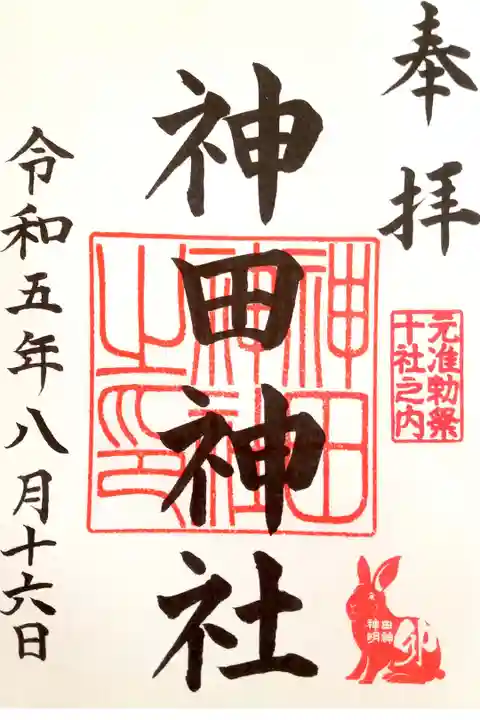 奉拝
元准勅祭
十社之内
神田神社
神田
神社
之印
卯
令和五年八月十六日